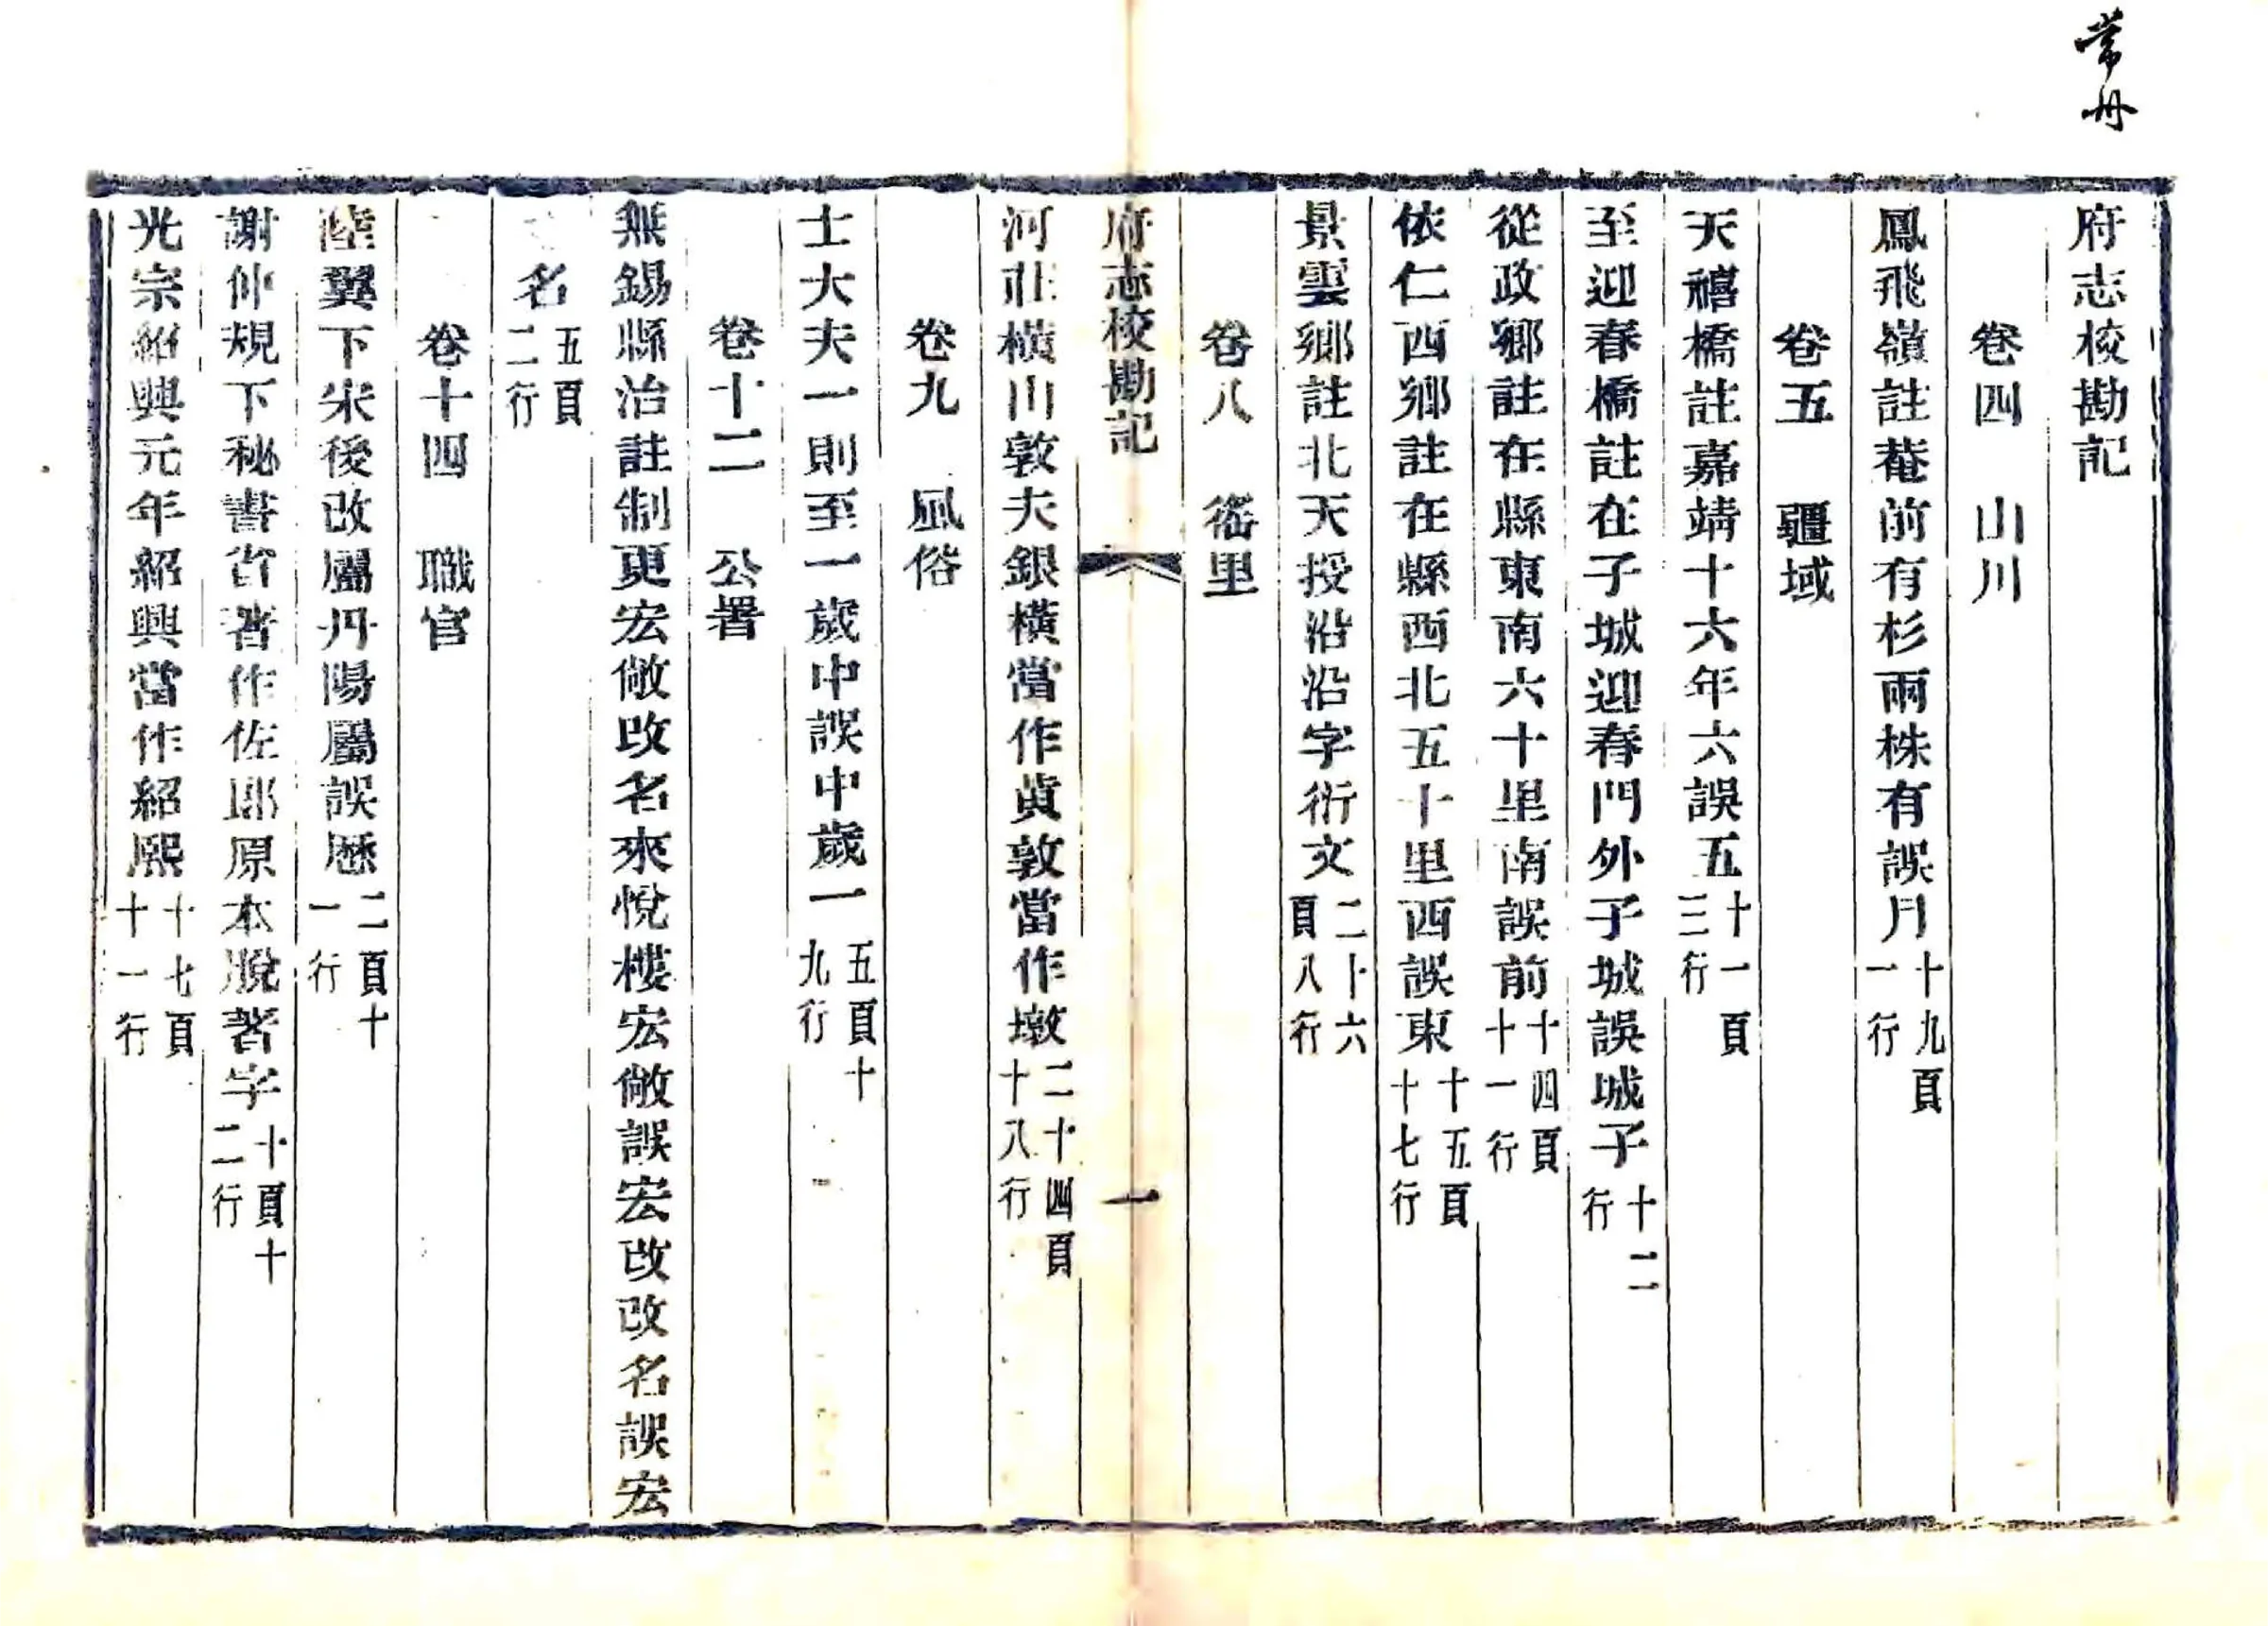 府志校勘記
卷四　山川
鳳飛嶺註菴前有杉兩株有誤月十九頁一行
卷五　疆域
天禧橋註嘉靖十六年六誤五十一頁三行
至迎春橋註在子城迎春門外子城誤城子十二行
從政鄉註在縣東南六十里南誤前十四頁十一行
依仁西鄉註在縣西北五十里西誤東十五頁十七行
景雲鄉註北天授沿沿字衍文二十六頁八行
卷八　徭里
府志校勘記　一
河莊橫山敦夫銀橫當作黃敦當作墩二十四頁十八行
卷九　風俗
士大夫一則至一歲中誤中歲一五頁十九行
卷十二　公署
無錫縣治註制更宏敞改名來悅樓宏敞誤宏改改名誤宏
名五頁二行
卷十四　職官
陸翼下宋後改屬丹陽屬誤歷二頁十一行
謝仲規下秘書省著作佐郎原本脫著字十頁十二行
光宗紹興元年紹興當作紹熙十七頁十一行